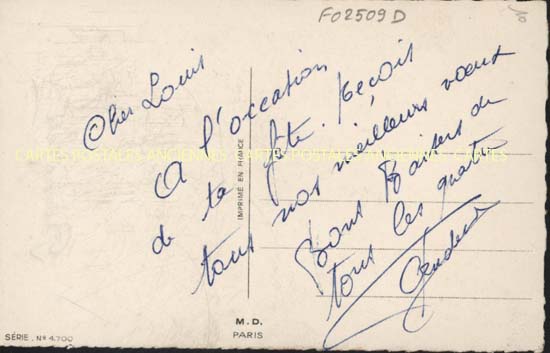 F02509D
Cher Louis
A l'occation
de ta fête. Reçois
tous nos meilleurs vœux
Bons Baisers de
tous les quatre
CARTES POSTALES ANCIENNES CARTES POSTALES ANCIENNES CARTES
IMPRIMÉ EN FRANCE
M.D.
PARIS
SÉRIE. Nº 4.700